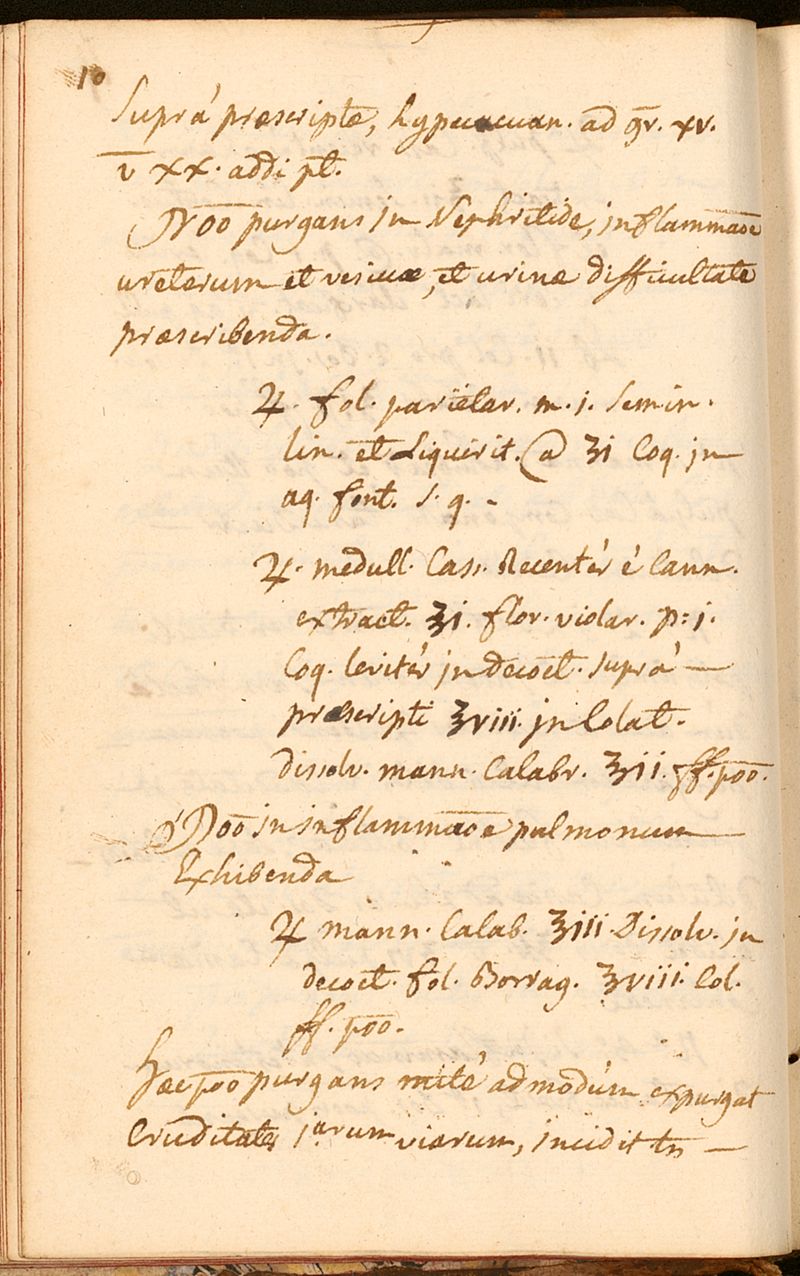 10
Suprà præscriptæ, hypecacuan. ad gr̄. xv.
v̄ XX. addi pt̄.
pōō purgans jn Nephritide, jnflammaōe
ureterum et vesicæ, et urinæ difficultate
præscribenda.
♃. fol. parietar. m. j. Semin.
lin. et Liquirit. @ ʒi Coq. jn
aq. font. s. q. -
♃. medull. Cass. Recentèr è Cann.
extract. ʒi. flor. violar. p: j.
Coq. levitèr jn decoct. suprà —
præscripti ʒviii. jn Colat.
dissolv. mann. Calabr. ʒii. ff. pōō.
pōō jn jnflammāōe pulmonum —
Exhibenda
♃ mann. Calab. ʒiii. Dissolv. jn
decoct. fol. Borrag. ʒviii. Col.
ff. pōō.
Hæc pōō purgans mitè admodùm expurgat
Cruditates j.arum viarum, jncidit tn̄ —